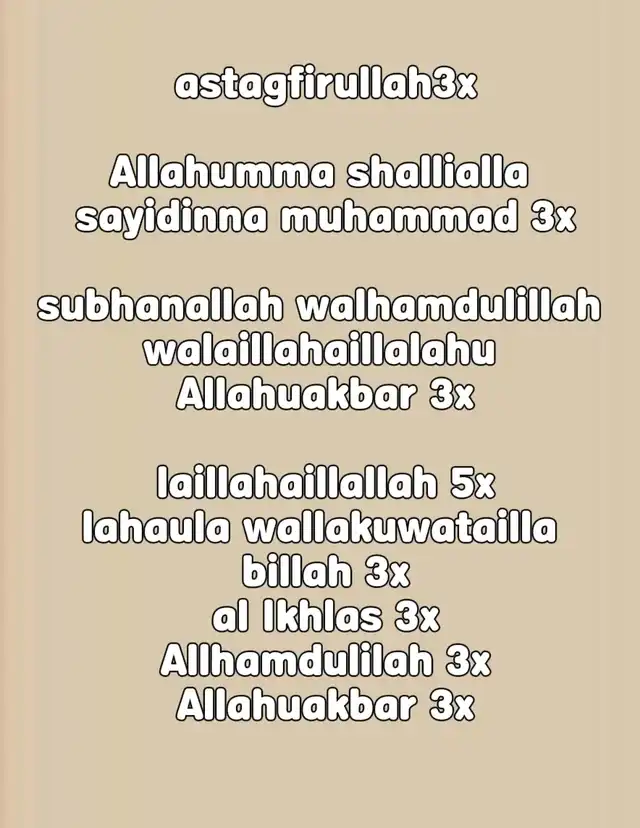 astagfirullah3x
Allahumma shallialla
sayidinna muhammad 3x
subhanallah walhamdulillah
walaillahaillalahu
Allahuakbar 3x
laillahaillallah 5x
lahaula wallakuwatailla
billah 3x
al Ikhlas 3x
Allhamdulilah 3x
Allahuakbar 3x